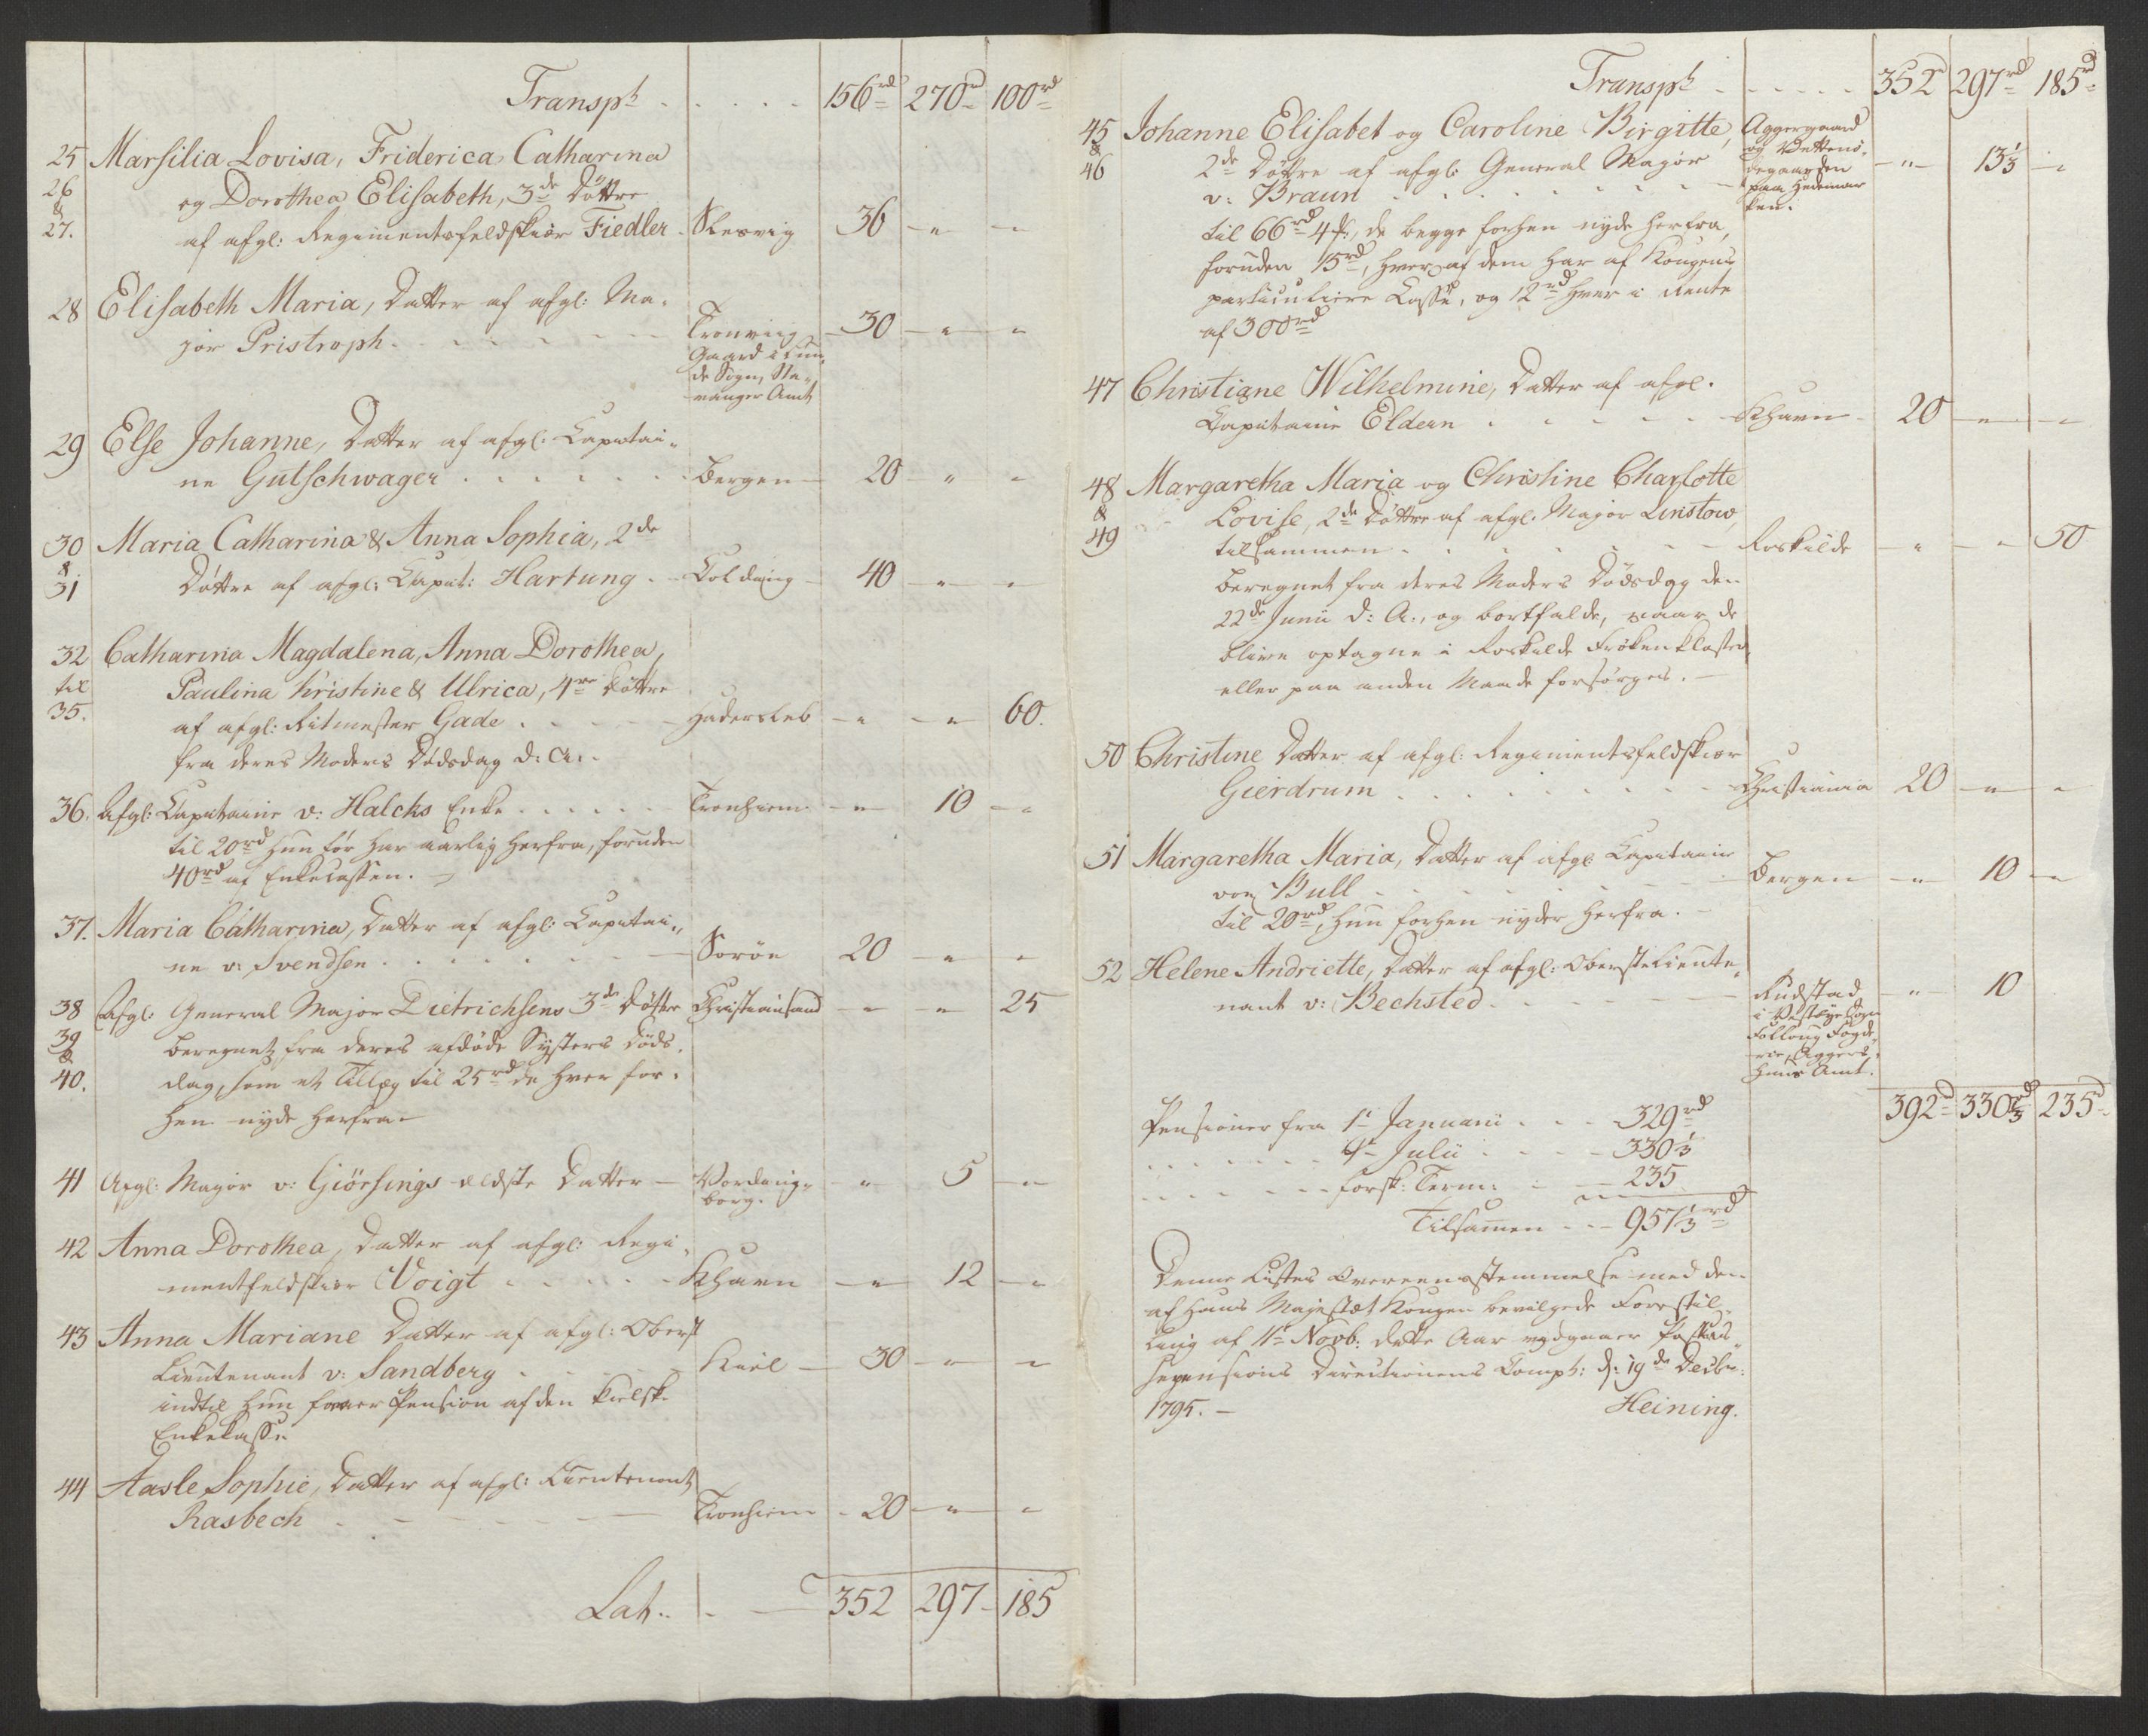 Transpt . . . . . 156rd 270rd 100rd
25 Marsilia Lovisa, Friderica Catharina
26 og Dorothea Elisabeth, 3de Døttre
&
27. af afgl: Regimentsfeldskiær Fiedler - Slesvig 36 - " - "
28 Elisabeth Maria, Datter af afgl: Ma-
jor Pristroph . . . . . . Tronviig 30 - " - "
Gaard i Sun-
de Sogn, Sta-
vanger Amt
29 Else Johanne, Datter af afgl: Capitai-
ne Gutschwager . . . . . . Bergen 20 " "
30 Maria Catharina & Anna Sophia, 2de
&
31 Døttre af afgl: Capit: Hartung - Colding 40 - " - "
32 Catharina Magdalena, Anna Dorothea,
til Paulina Kristine & Ulrica, 4re Døttre
35. af afgl: Ritmester Gade . . . . Hadersleb - " - " 60.
fra deres Moders Dødsdag d: A:.
36. Afgl: Capitaine v: Halcks Enke . . . . Tronhiem - " - 10 - "
til 20rd hun før har aarlig herfra, foruden
40rd af Enkecassen. -
37. Maria Catharina, Datter af afgl: Capitai-
ne v: Svendsen . . . . . . Sorøe 20 - " - "
38 Afgl: General Major Dietrichsens 3de Døttre Christiansand - " - " 25
39 beregnet fra deres afdøde Systers Døds-
&
40. dag, som et Tillæg til 25rd de hver for-
hen nyde herfra -
41 Afgl: Major v: Giörsings ældste Datter - Vording- " 5 - "
borg.
42 Anna Dorothea, Datter af afgl: Regi-
mentfeldskiær Voigt . . . . . Khavn - " - 12 - "
43 Anna Mariane Datter af afgl: Oberst
Lieutenant v: Sandberg . . . . Kiel - 30 - " - "
indtil hun faaer Pension af den kielsk.
Enkekasse
44 Aasle Sophie, Datter af afgl: Lieutenant
Rasbech . . . . . . Tronhiem - 20 - " - "
Lat. . - 352 297 - 185
Transpt . . . . . 352 297rd 185rd
45 Johanne Elisabet og Caroline Birgitte, Aggergaard
&
46 2de Døttre af afgl: General Major
v: Braun . . . . . . - " - 13⅓ - "
paa Hedemar
ken.
til 66rd 4 s, de begge forhen nyde herfra,
foruden 15rd, hver af dem har af Kongens
particuliere Casse, og 12rd hver i Rente
af 300rd
47 Christiane Wilhelmine, Datter af afgl.
Capitaine Eldern . . . . . Khavn - 20 - " - "
48 Margaretha Maria og Christine Charlotte
&
49 Lovise, 2de Døttre af afgl. Major Linstow,
tilsammen . . . . . . Roskilde - " - " 50
beregnet fra deres Moders Dødsdag den
22de Junii d: A., og bortfalde, naar de
blive optagne i Roskilde Frøkenkloster
eller paa anden Maade forsørges. -
50 Christine Datter af afgl: Regimentsfeldskiær
Gierdrum . . . . . . . Christiania 20 - " - "
51 Margaretha Maria, Datter af afgl: Capitaine
von Bull . . . . . . . Bergen - " - 10 - "
til 20rd, hun forhen nyder herfra. -
52 Helene Andriette, Datter af afgl: Oberstelieute-
nant v: Bechsted . . . . . . Rudstad - " - 10
i Vestbye Sogn
Folloug Fogde-
rie, Aggers-
huus Amt.
392rd 330⅓rd 235rd
Pensioner fra 1te Januarii . . . 329rd
. . . . . . 1te Julii . . . . 330⅓
. . . . . . forsk: Term: . - 235
Tilsamen - - 957⅓rd
Denne Listes Overeensstemmelse med den
af Hans Majestæt Kongen bevilgede Forestil-
ling af 11te Novb: dette Aar
Pensions Directionens Compt: d: 19de Decbr:
1795. - Heining.